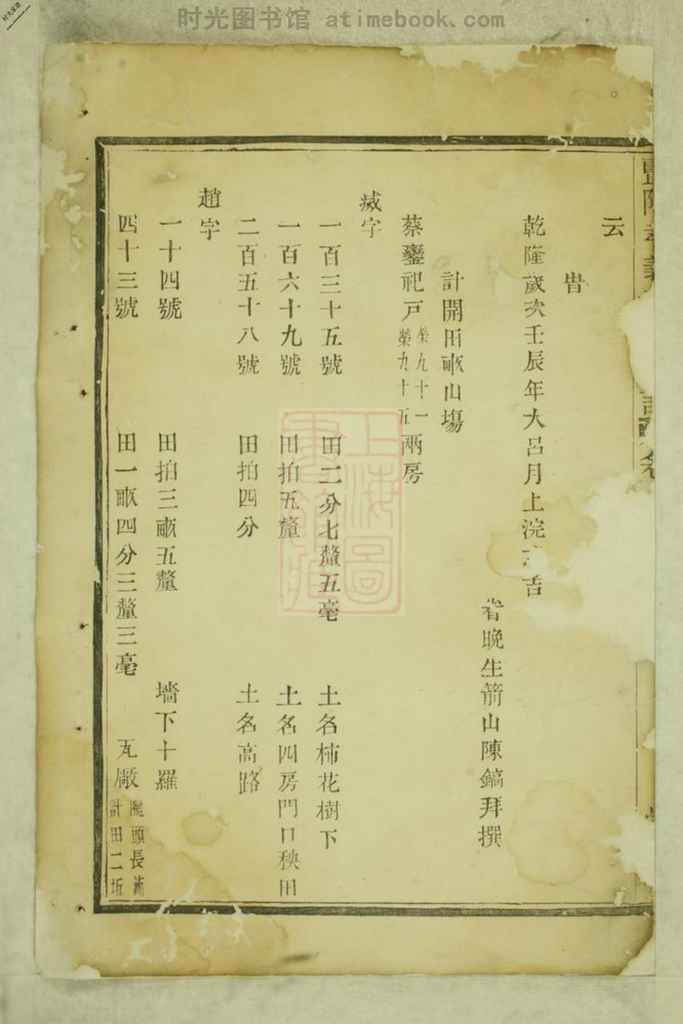 时光图书馆 atimebook.com
云
旹
乾隆歲次壬辰年大呂月上浣 吉
省晚生箭山陳鎬拜撰
計開田畝山塲
蔡鑾祀戸榮九十一榮九十五兩房
烕字
一百三十五號 田二分七釐五毫 土名柿花樹下
一百六十九號 田拍五釐 土名四房門口秧田
二百五十八號 田拍四分 土名高路
趙字
一十四號 田拍三畝五釐 墻下十羅
四十三號 田一畝四分三釐三毫 瓦廠 頭長 計田二坵
上海圖